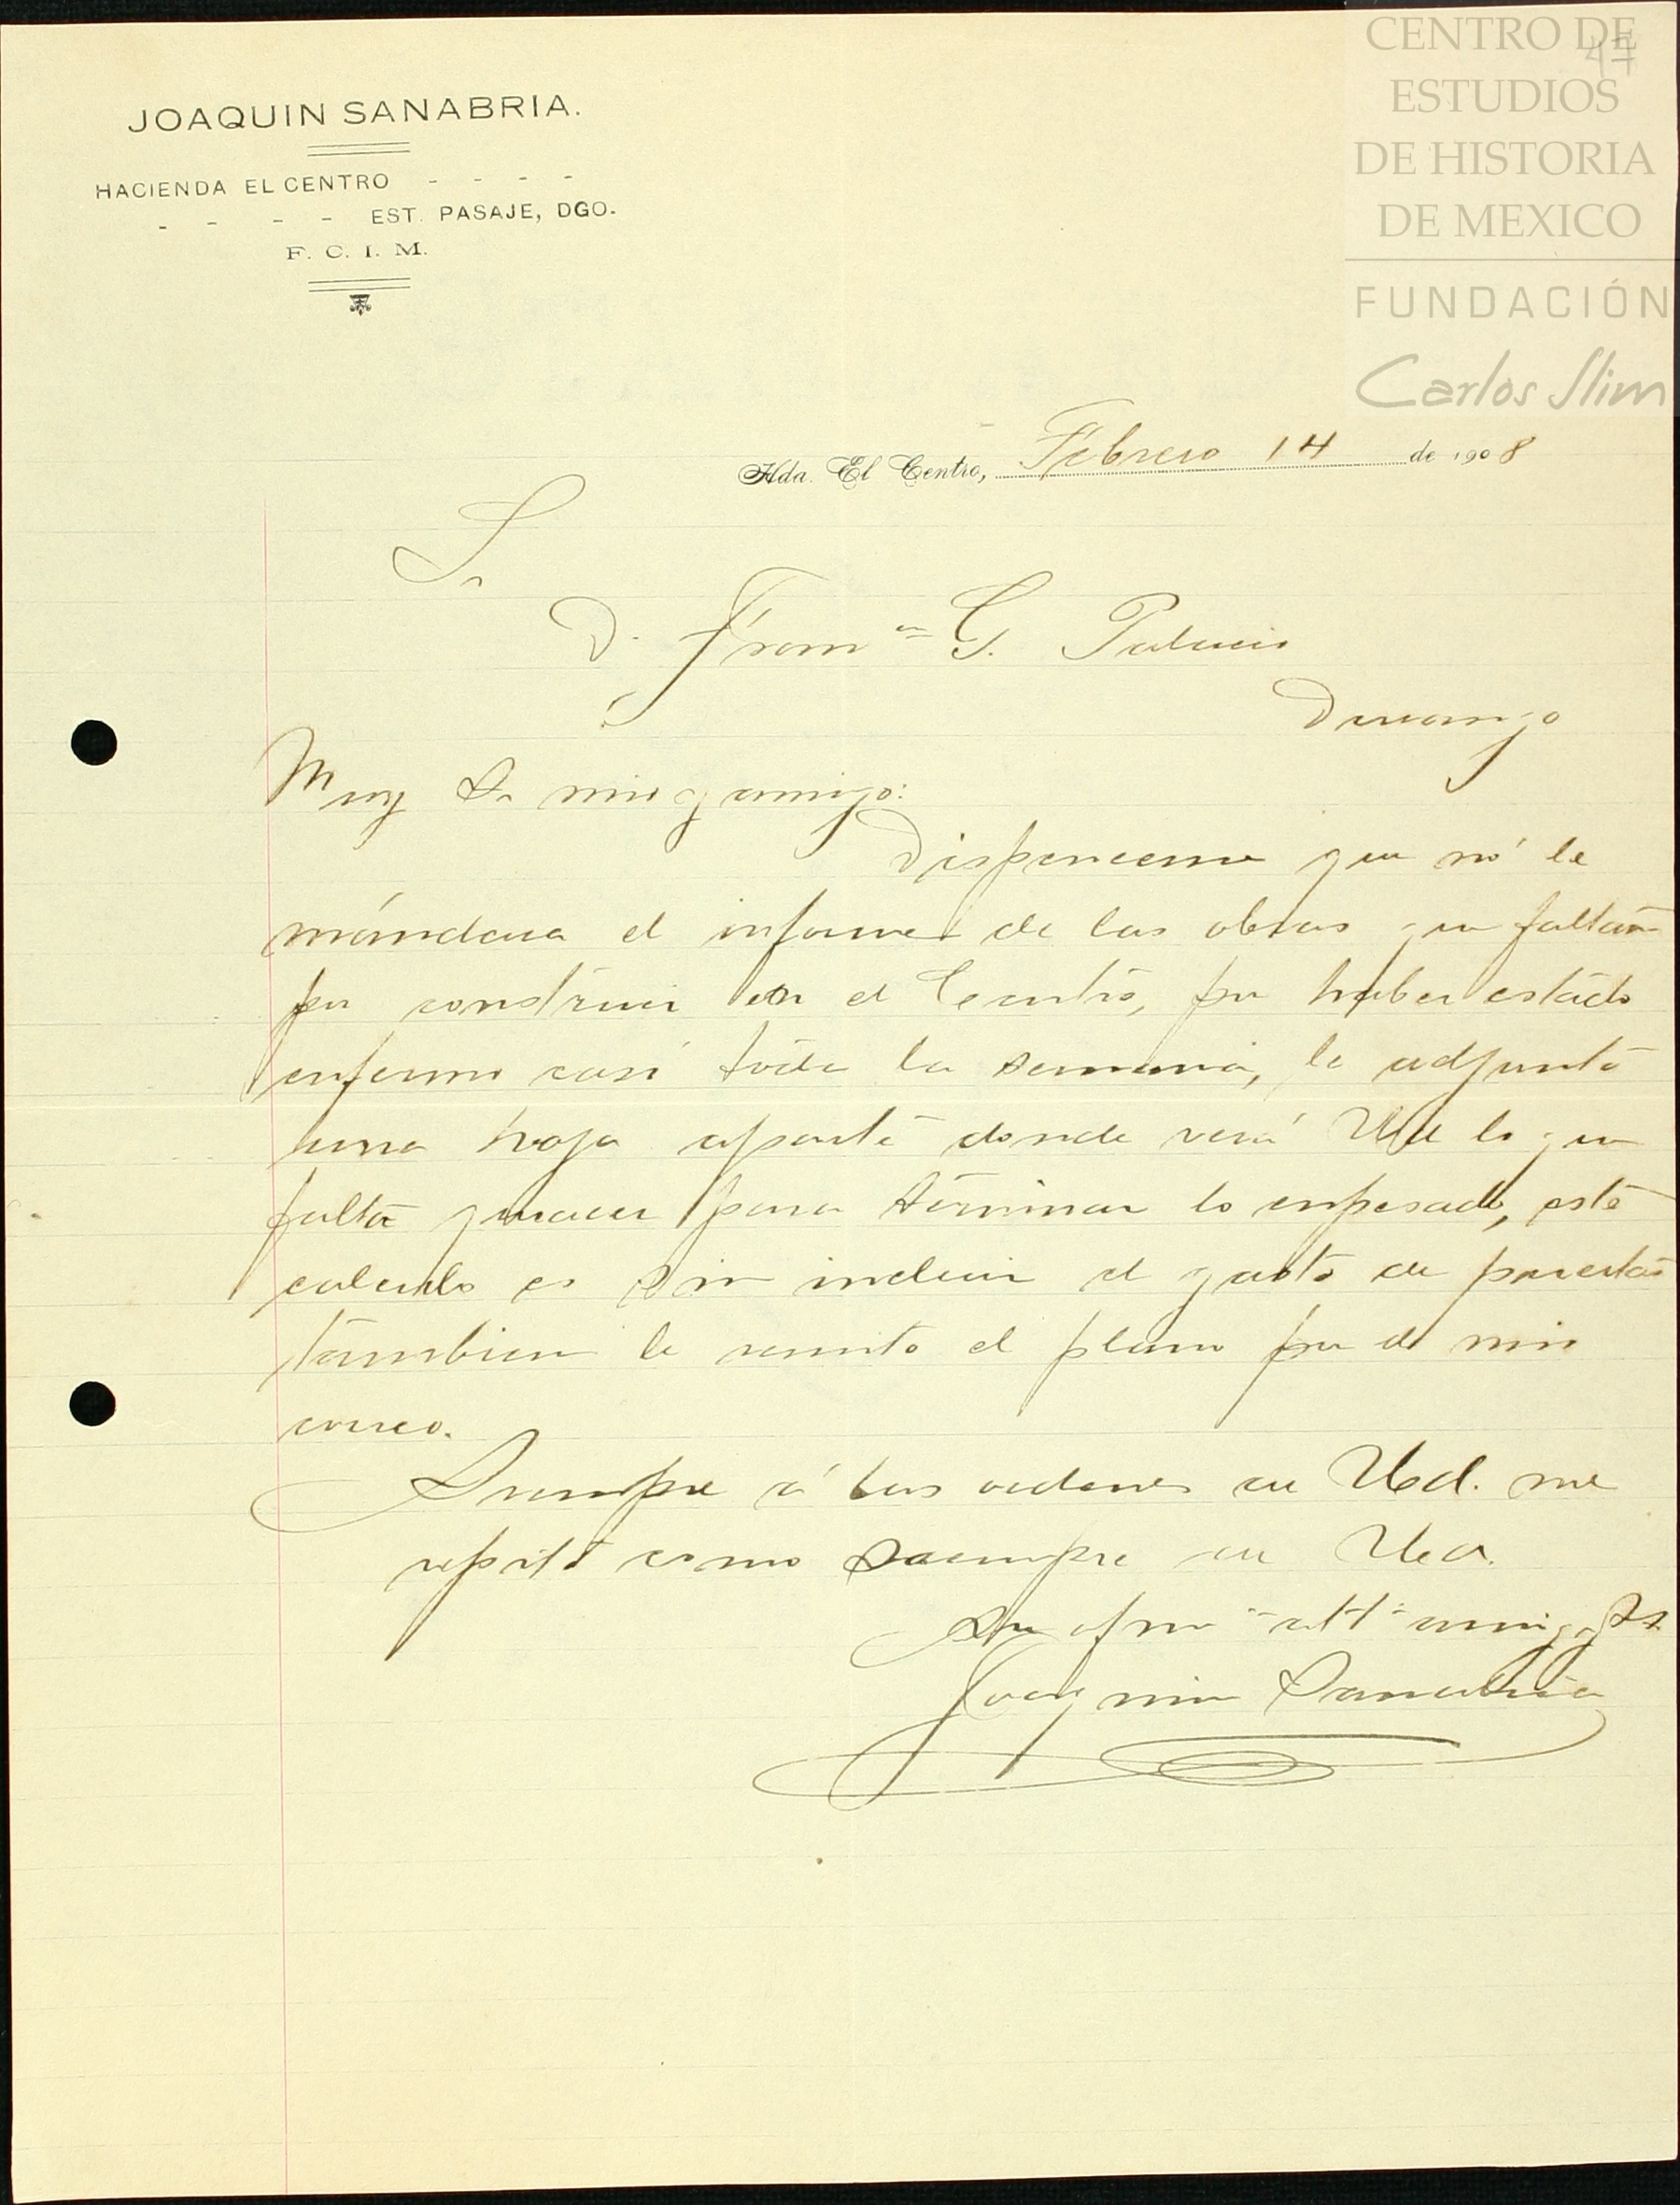 CENTRO DE
ESTUDIOS
DE HISTORIA
DE MEXICO
FUNDACIÓN
Carlos Slim
47
JOAQUIN SANABRIA.
HACIENDA EL CENTRO - - - -
- - - - EST. PASAJE, DGO.
F. C. I. M.
Hda. El Centro, Febrero 14 de 1908
Sr
D. Fran co G. Palacio
Durango
Muy Sr mio y amigo:
Dispenceme que nó le
mandara el informe de las obras que faltan
por construir en el Centro, por haber estado
enfermo casi toda la semana, le adjunto
una hoja aparte donde verá Ud lo que
falta para terminar lo enpesado, este
calculo es sin incluir el gasto de puertas
tambien le remito el plano por el mis
correo.
Siempre á las ordenes de Ud. me
repito como siempre de Ud.
Su afmo att amigo y SS.
Joaquin Sanabria